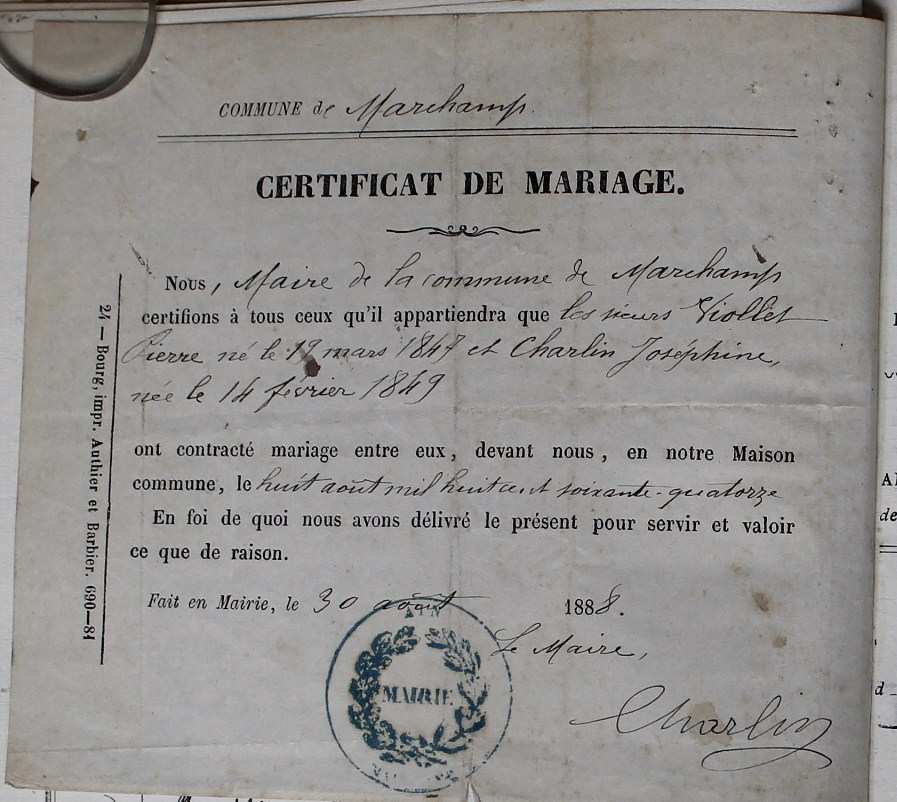 COMMUNE de Marchamp.
CERTIFICAT DE MARIAGE.
Nous, Maire de la commune de Marchamp
certifions à tous ceux qu'il appartiendra que les sieurs Viollet
Pierre né le mars 1847 et Charlin Joséphine,
née le 14 février 1849
ont contracté mariage entre eux, devant nous, en notre Maison
commune, le huit août mil huit cent soixante-quatorze
En foi de quoi nous avons délivré le présent pour servir et valoir
ce que de raison.
Fait en Mairie, le 30 août 1888.
Le Maire,
Charlin
AIN
MAIRIE
24 — Bourg, impr. Authier et Barbier. 690—81